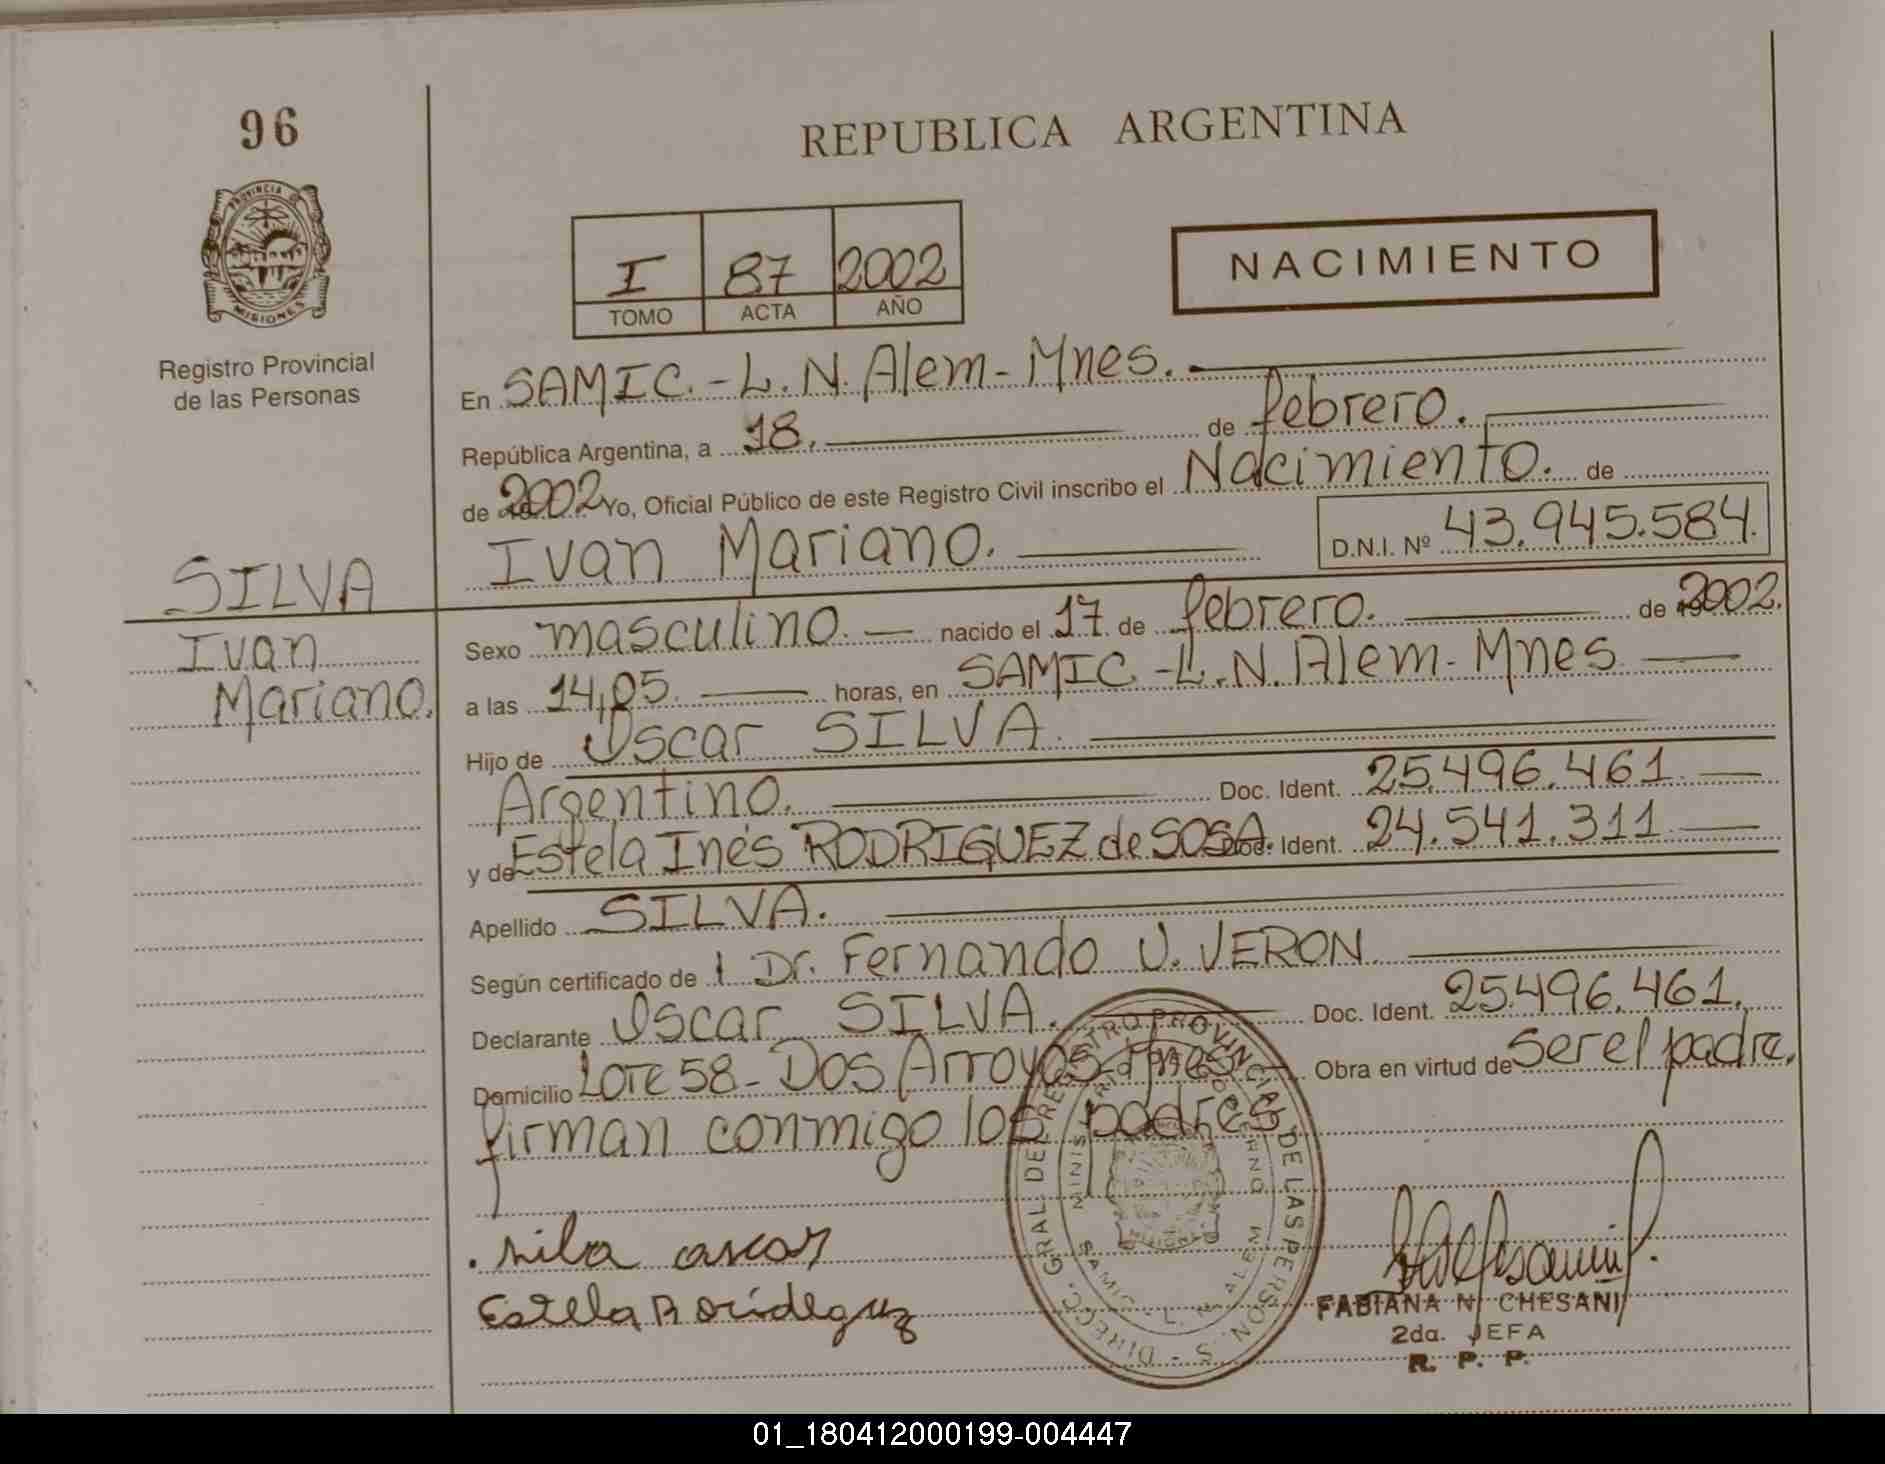 96
REPUBLICA ARGENTINA
PROVINCIA
MISIONES
I 87 2002
TOMO ACTA AÑO
NACIMIENTO
Registro Provincial
de las Personas
En SAMIC.-L.N. Alem-Mnes.
República Argentina, a 18. de febrero.
de 2002 Yo, Oficial Público de este Registro Civil inscribo el Nacimiento. de
Ivan Mariano. D.N.I. Nº 43.945.584.
SILVA
Ivan
Mariano.
Sexo masculino. nacido el 17 de febrero. de 2002.
a las 14,05. horas, en SAMIC.-L.N. Alem-Mnes
Hijo de Oscar SILVA.
Argentino. Doc. Ident. 25.496.461.
y de Estela Inés RODRIGUEZ de SOSA Doc. Ident. 24.541.311.
Apellido SILVA.
Según certificado de Dr. Fernando VERON
Declarante Oscar SILVA. Doc. Ident. 25.496.461.
Domicilio Lote 58-Dos Arroyos-Mnes Obra en virtud de Ser el padre.
firman conmigo los padres
DIRECC. GRAL DE REGISTRO PROVINCIAL DE LAS PERSON. S.
SAMIC - L. N. ALEM
Silva oscar
Estela Rorideguz
FABIANA N. CHESANI
2da. JEFA
R. P. P.
01_180412000199-004447